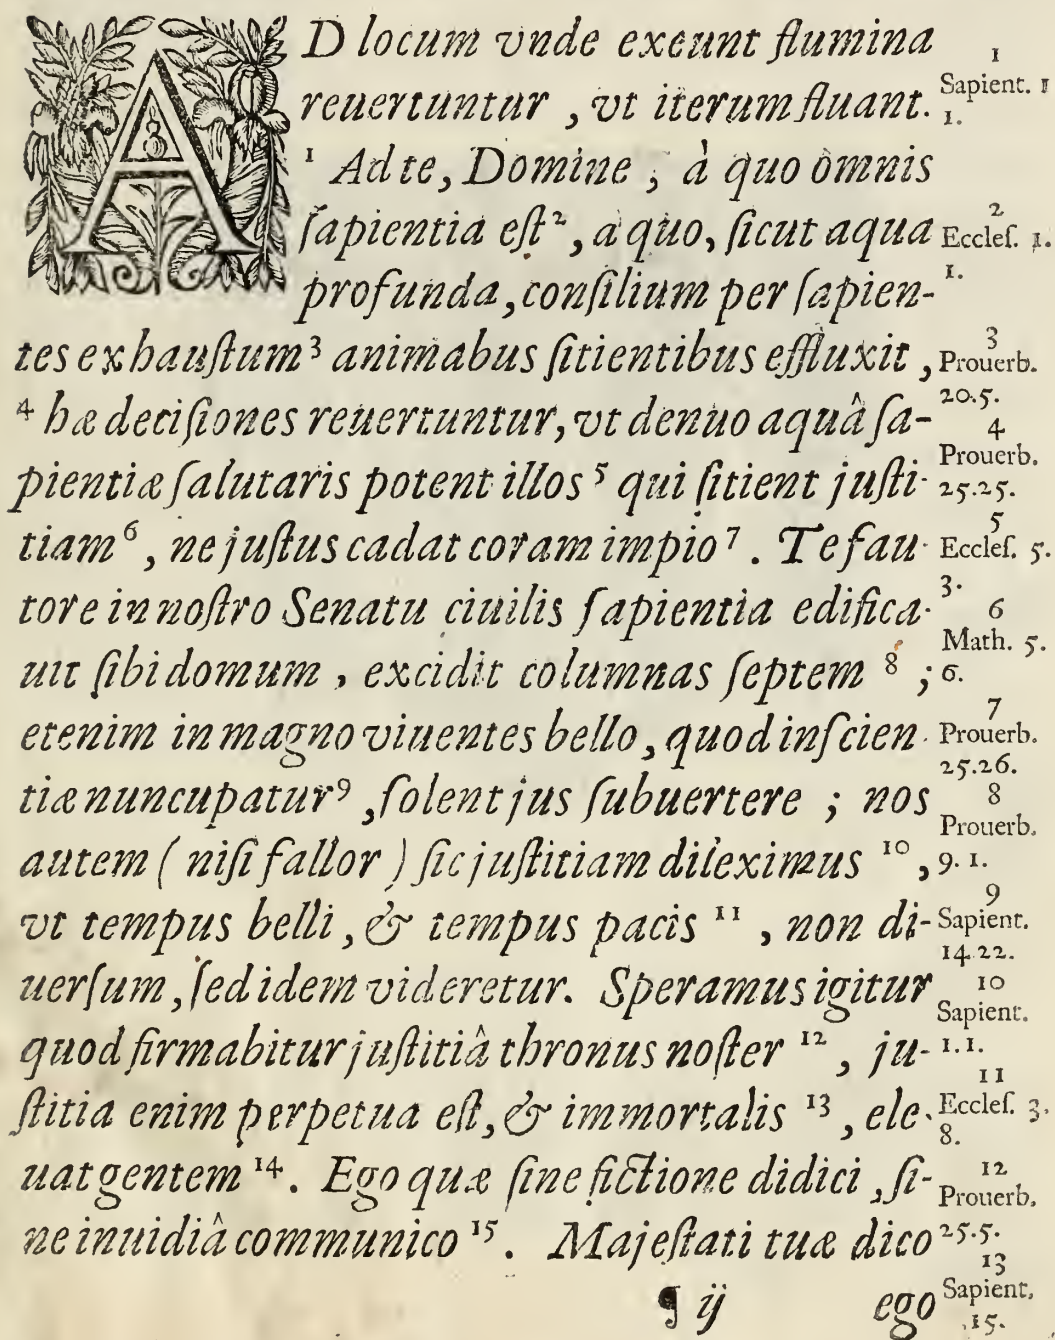 AD locum vnde exeunt flumina
reuertuntur, vt iterum fluant.
¹ Ad te, Domine, à quo omnis
ſapientia eſt², a quo, ſicut aqua
profunda, conſilium per ſapien-
tes exhauſtum³ animabus ſitientibus effluxit,
⁴ hæ deciſiones reuertuntur, vt denuo aquâ ſa-
pientiæ ſalutaris potent illos⁵ qui ſitient juſti-
tiam⁶, ne juſtus cadat coram impio⁷. Te fau-
tore in noſtro Senatu ciuilis ſapientia edifica-
uit ſibi domum, excidit columnas ſeptem⁸;
etenim in magno viuentes bello, quod inſcien-
tiæ nuncupatur⁹, ſolent jus ſubuertere; nos
autem (niſi fallor) ſic juſtitiam dileximus¹⁰,
vt tempus belli, & tempus pacis¹¹, non di-
uerſum, ſed idem videretur. Speramus igitur
quod firmabitur juſtitiâ thronus noſter¹², ju-
ſtitia enim perpetua eſt, & immortalis¹³, ele-
uat gentem¹⁴. Ego quæ ſine fictione didici, ſi-
ne inuidiâ communico¹⁵. Majeſtati tuæ dico
¶ ij
ego
1
Sapient. 1
1.
2
Eccleſ. 1.
1.
3
Prouerb.
20.5.
4
Prouerb.
25.25.
5
Eccleſ. 5.
3.
6
Math. 5.
6.
7
Prouerb.
25.26.
8
Prouerb.
9. 1.
9
Sapient.
14.22.
10
Sapient.
1.1.
11
Eccleſ. 3.
8.
12
Prouerb.
25.5.
13
Sapient.
15.